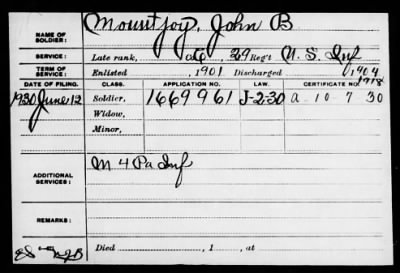 NAME OF SOLDIER: Mountjoy, John B
SERVICE: Late rank, Co G, 29 Reg't U. S. Inf
TERM OF SERVICE: Enlisted , 1901 Discharged , 1904
DATE OF FILING. CLASS. APPLICATION NO. LAW. CERTIFICATE NO. 1918
1930 June 12 Soldier, 1669961 J-2-30 a 10 7 30
Widow,
Minor,
ADDITIONAL SERVICES: M 4 Pa Inf
REMARKS:
Died , 1 , at